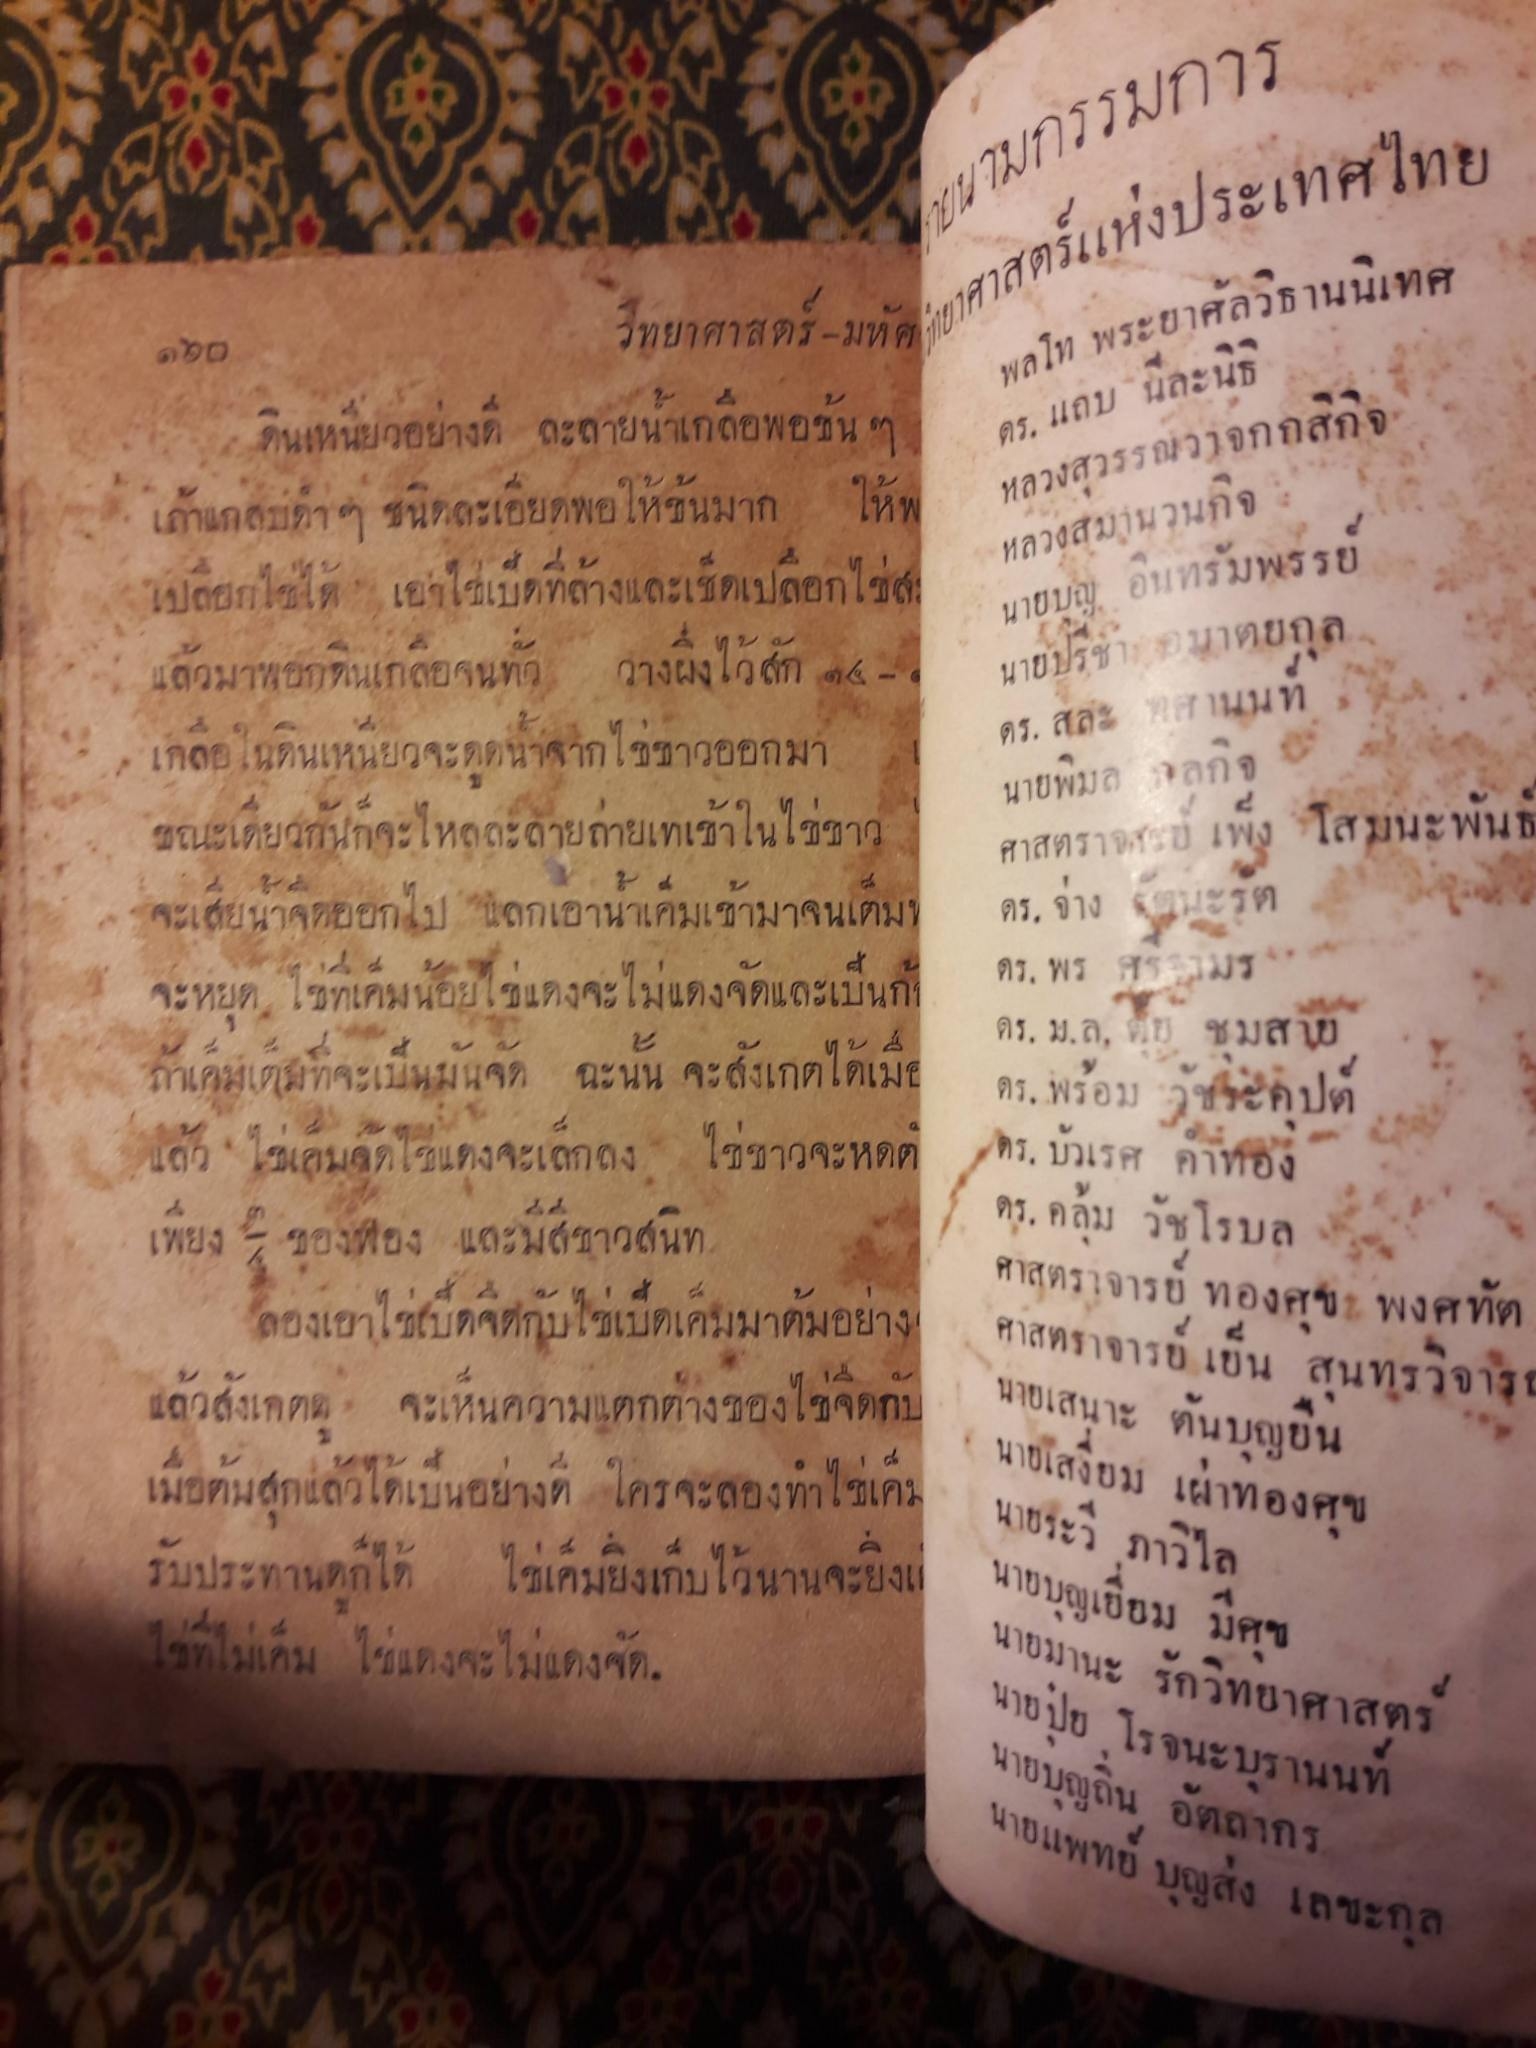 ๑๖๐ วิทยาศาสตร์-มหัศ
ดินเหนียวอย่างดี ละลายน้ำเกลือพอข้น ๆ
เถ้าแกลบดำ ๆ ชนิดละเอียดพอให้ข้นมาก ให้พ
เปลือกไข่ได้ เอาไข่เป็ดที่ล้างและเช็ดเปลือกไข่สะ
แล้วมาพอกดินเกลือจนทั่ว วางผึ่งไว้สัก ๑๔ –
เกลือในดินเหนียวจะดูดน้ำจากไข่ขาวออกมา
ขณะเดียวกันก็จะไหลละลายถ่ายเทเข้าในไข่ขาว
จะเสียน้ำจืดออกไป แลกเอาน้ำเค็มเข้ามาจนเต็ม
จะหยุด ไข่ที่เค็มน้อยไข่แดงจะไม่แดงจัดและเป็นก้
ถ้าเค็มเต็มที่จะเป็นมันจัด ฉะนั้น จะสังเกตได้เมื่อ
แล้ว ไข่เค็มจัดไข่แดงจะเล็กลง ไข่ขาวจะหดตั
เพียง ๓/๔ ของฟอง และมีสีขาวสนิท
ลองเอาไข่เป็ดจืดกับไข่เป็ดเค็มมาต้มอย่าง
แล้วสังเกตดู จะเห็นความแตกต่างของไข่จืดกับ
เมื่อต้มสุกแล้วได้เป็นอย่างดี ใครจะลองทำไข่เค็ม
รับประทานดูก็ได้ ไข่เค็มยิ่งเก็บไว้นานจะยิ่ง
ไข่ที่ไม่เค็ม ไข่แดงจะไม่แดงจัด.
รายนามกรรมการ
วิทยาศาสตร์แห่งประเทศไทย
พลโท พระยาศัลวิธานนิเทศ
ดร. แถบ นีละนิธิ
หลวงสุวรรณวาจกกสิกิจ
หลวงสมานวนกิจ
นายบุญ อินทรัมพรรย์
นายปรีชา อมาตยกุล
ดร. สละ ทศานนท์
นายพิมล กลกิจ
ศาสตราจารย์ เพ็ง โสมนะพันธ์
ดร. จ่าง รัตนะรัต
ดร. พร ศรีจามร
ดร. ม.ล. ตุ้ย ชุมสาย
ดร. พร้อม วัชระคุปต์
ดร. บัวเรศ คำทอง
ดร. คลุ้ม วัชโรบล
ศาสตราจารย์ ทองศุข พงศทัต
ศาสตราจารย์ เย็น สุนทรวิจารณ
นายเสนาะ ตันบุญยืน
นายเสงี่ยม เผ่าทองศุข
นายระวี ภาวิไล
นายบุญเยี่ยม มีศุข
นายมานะ รักวิทยาศาสตร์
นายปุ๋ย โรจนะบุรานนท์
นายบุญถิ่น อัตถากร
นายแพทย์ บุญส่ง เลขะกุล